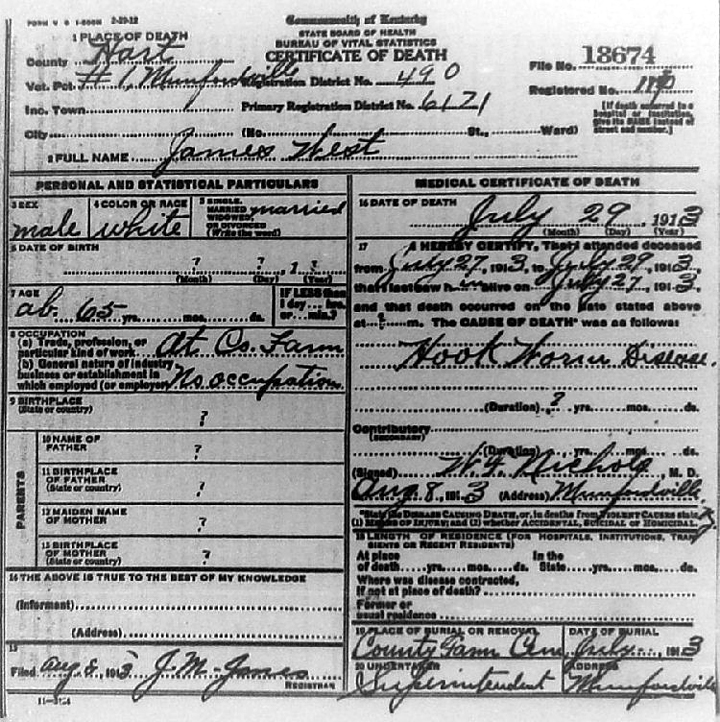 FORM V. S. 1-500M 2-29-12
Commonwealth of Kentucky
STATE BOARD OF HEALTH
BUREAU OF VITAL STATISTICS
CERTIFICATE OF DEATH
1 PLACE OF DEATH
County Hart
Vot. Pct. #1, Munfordville Registration District No. 490
Inc. Town Primary Registration District No. 6171
City (No. St., Ward)
File No. 18674
Registered No.
[If death occurred in a
hospital or institution,
give its NAME instead of
street and number.]
2 FULL NAME James West
PERSONAL AND STATISTICAL PARTICULARS
3 SEX male
4 COLOR OR RACE white
5 SINGLE, MARRIED, WIDOWED, OR DIVORCED (Write the word) married
6 DATE OF BIRTH
? ? , 1 ?
(Month) (Day) (Year)
7 AGE
ab. 65 yrs. mos. ds.
IF LESS than
1 day ... hrs.
or ... min.?
8 OCCUPATION
(a) Trade, profession, or
particular kind of work At Co. Farm
(b) General nature of industry
business or establishment in
which employed (or employer) No occupation
9 BIRTHPLACE
(State or country) ?
PARENTS
10 NAME OF
FATHER ?
11 BIRTHPLACE
OF FATHER
(State or country) ?
12 MAIDEN NAME
OF MOTHER ?
13 BIRTHPLACE
OF MOTHER
(State or country) ?
14 THE ABOVE IS TRUE TO THE BEST OF MY KNOWLEDGE
(Informant)
(Address)
15
Filed Aug 8, 1913 J. M. James
REGISTRAR
11-3184
MEDICAL CERTIFICATE OF DEATH
16 DATE OF DEATH
July 29, 1913
(Month) (Day) (Year)
17 I HEREBY CERTIFY, That I attended deceased
from July 27, 1913, to July 29, 1913,
that I last saw h im alive on July 27, 1913,
and that death occurred on the date stated above
at ? m. The CAUSE OF DEATH* was as follows:
Hook Worm Disease.
(Duration) ? yrs. mos. ds.
Contributory
(SECONDARY)
(Duration) yrs. mos. ds.
(Signed) W. F. Nichols M. D.
Aug 8, 1913 (Address) Munfordville,
*State the DISEASE CAUSING DEATH, or, in deaths from VIOLENT CAUSES state
(1) MEANS OF INJURY; and (2) whether ACCIDENTAL, SUICIDAL or HOMICIDAL.
18 LENGTH OF RESIDENCE (FOR HOSPITALS, INSTITUTIONS, TRAN-
SIENTS OR RECENT RESIDENTS)
At place In the
of death yrs. mos. ds. State yrs. mos. ds.
Where was disease contracted,
If not at place of death?
Former or
usual residence
19 PLACE OF BURIAL OR REMOVAL
County Farm Cem.
DATE OF BURIAL
July 1913
20 UNDERTAKER
Superintendent
ADDRESS
Munfordville